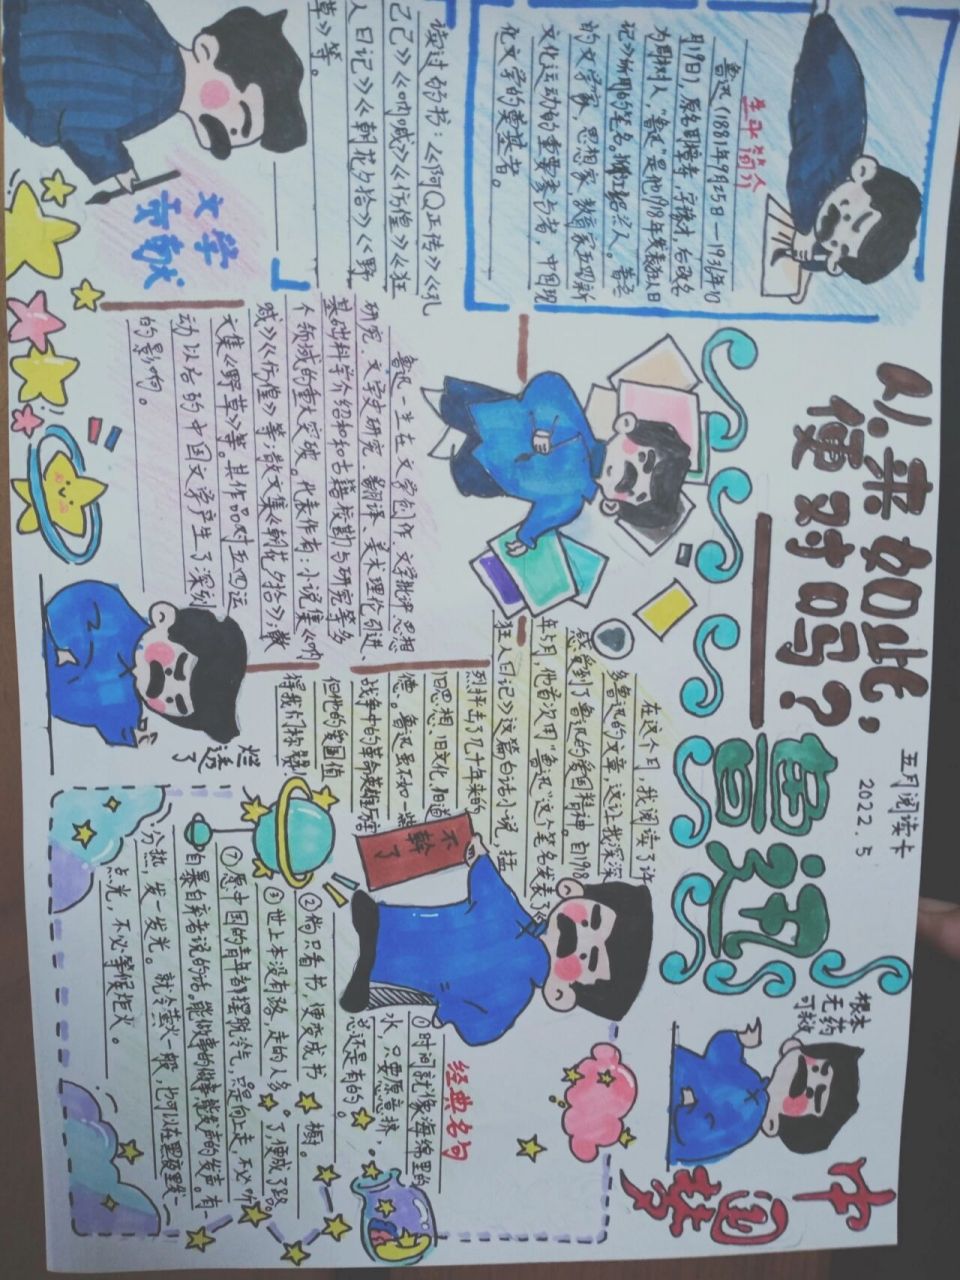 五月阅读卡
2022 5
从来如此，
便对吗？
鲁迅
中国梦
生平简介
鲁迅（1881年9月25日—1936年10
月19日），原名周樟寿，字豫才，后改名
为周树人，“鲁迅”是他1918年发表狂人日
记》所用的笔名。浙江绍兴人。著名
的文学家、思想家、教育家五四新
文化运动的重要参与者，中国现
代文学的奠基者。
读过的书：《阿Q正传》《孔
乙己》《呐喊》《彷徨》《狂
人日记》《朝花夕拾》《野
草》等。
文学
贡献
鲁迅一生在文学创作、文学批评、思想
研究、文学史研究、翻译、美术理论引进、
基础科学介绍和和古籍校勘与研究等多
个领域的重大突破。代表作有：小说集《呐
喊》《彷徨》等；散文集《朝花夕拾》；散
文集《野草》等。其作品对五四运
动以后的中国文学产生了深刻
的影响。
在这个月，我阅读了许
多鲁迅的文章，这让我深深
感受到了鲁迅的爱国精神。自1918
年5月，他首次用“鲁迅”这个笔名发表了《
狂人日记》这篇白话小说，猛
烈抨击了几千年来的
旧思想、旧文化、旧道
德。鲁迅虽不如一些
战争中的革命英雄
但他的爱国值
得我们称赞！
烂透了
不幹了
根本
无药
可救
经典名句
①时间就像海绵里的
水，只要愿意挤，
总还是有的。
②倘只看书，便变成书橱。
③世上本没有路，走的人多了便成了路。
⑦愿中国的青年都摆脱冷汽，只是向上走，不必听
自暴自弃者说的话。能做事的做事能发声的发声。有一
分热，发一发光。就令萤火一般，也可以在黑夜里发一
点光，不必等候炬火。